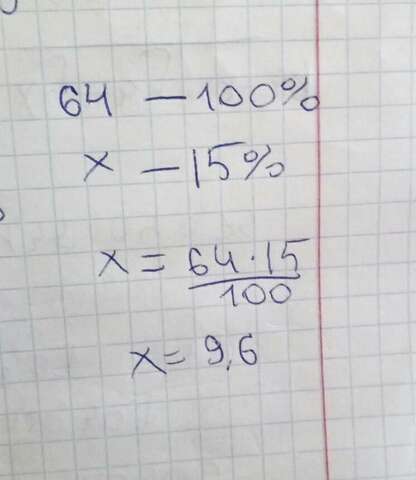 64 — 100%
x — 15%
x = 64·15
100
x = 9,6